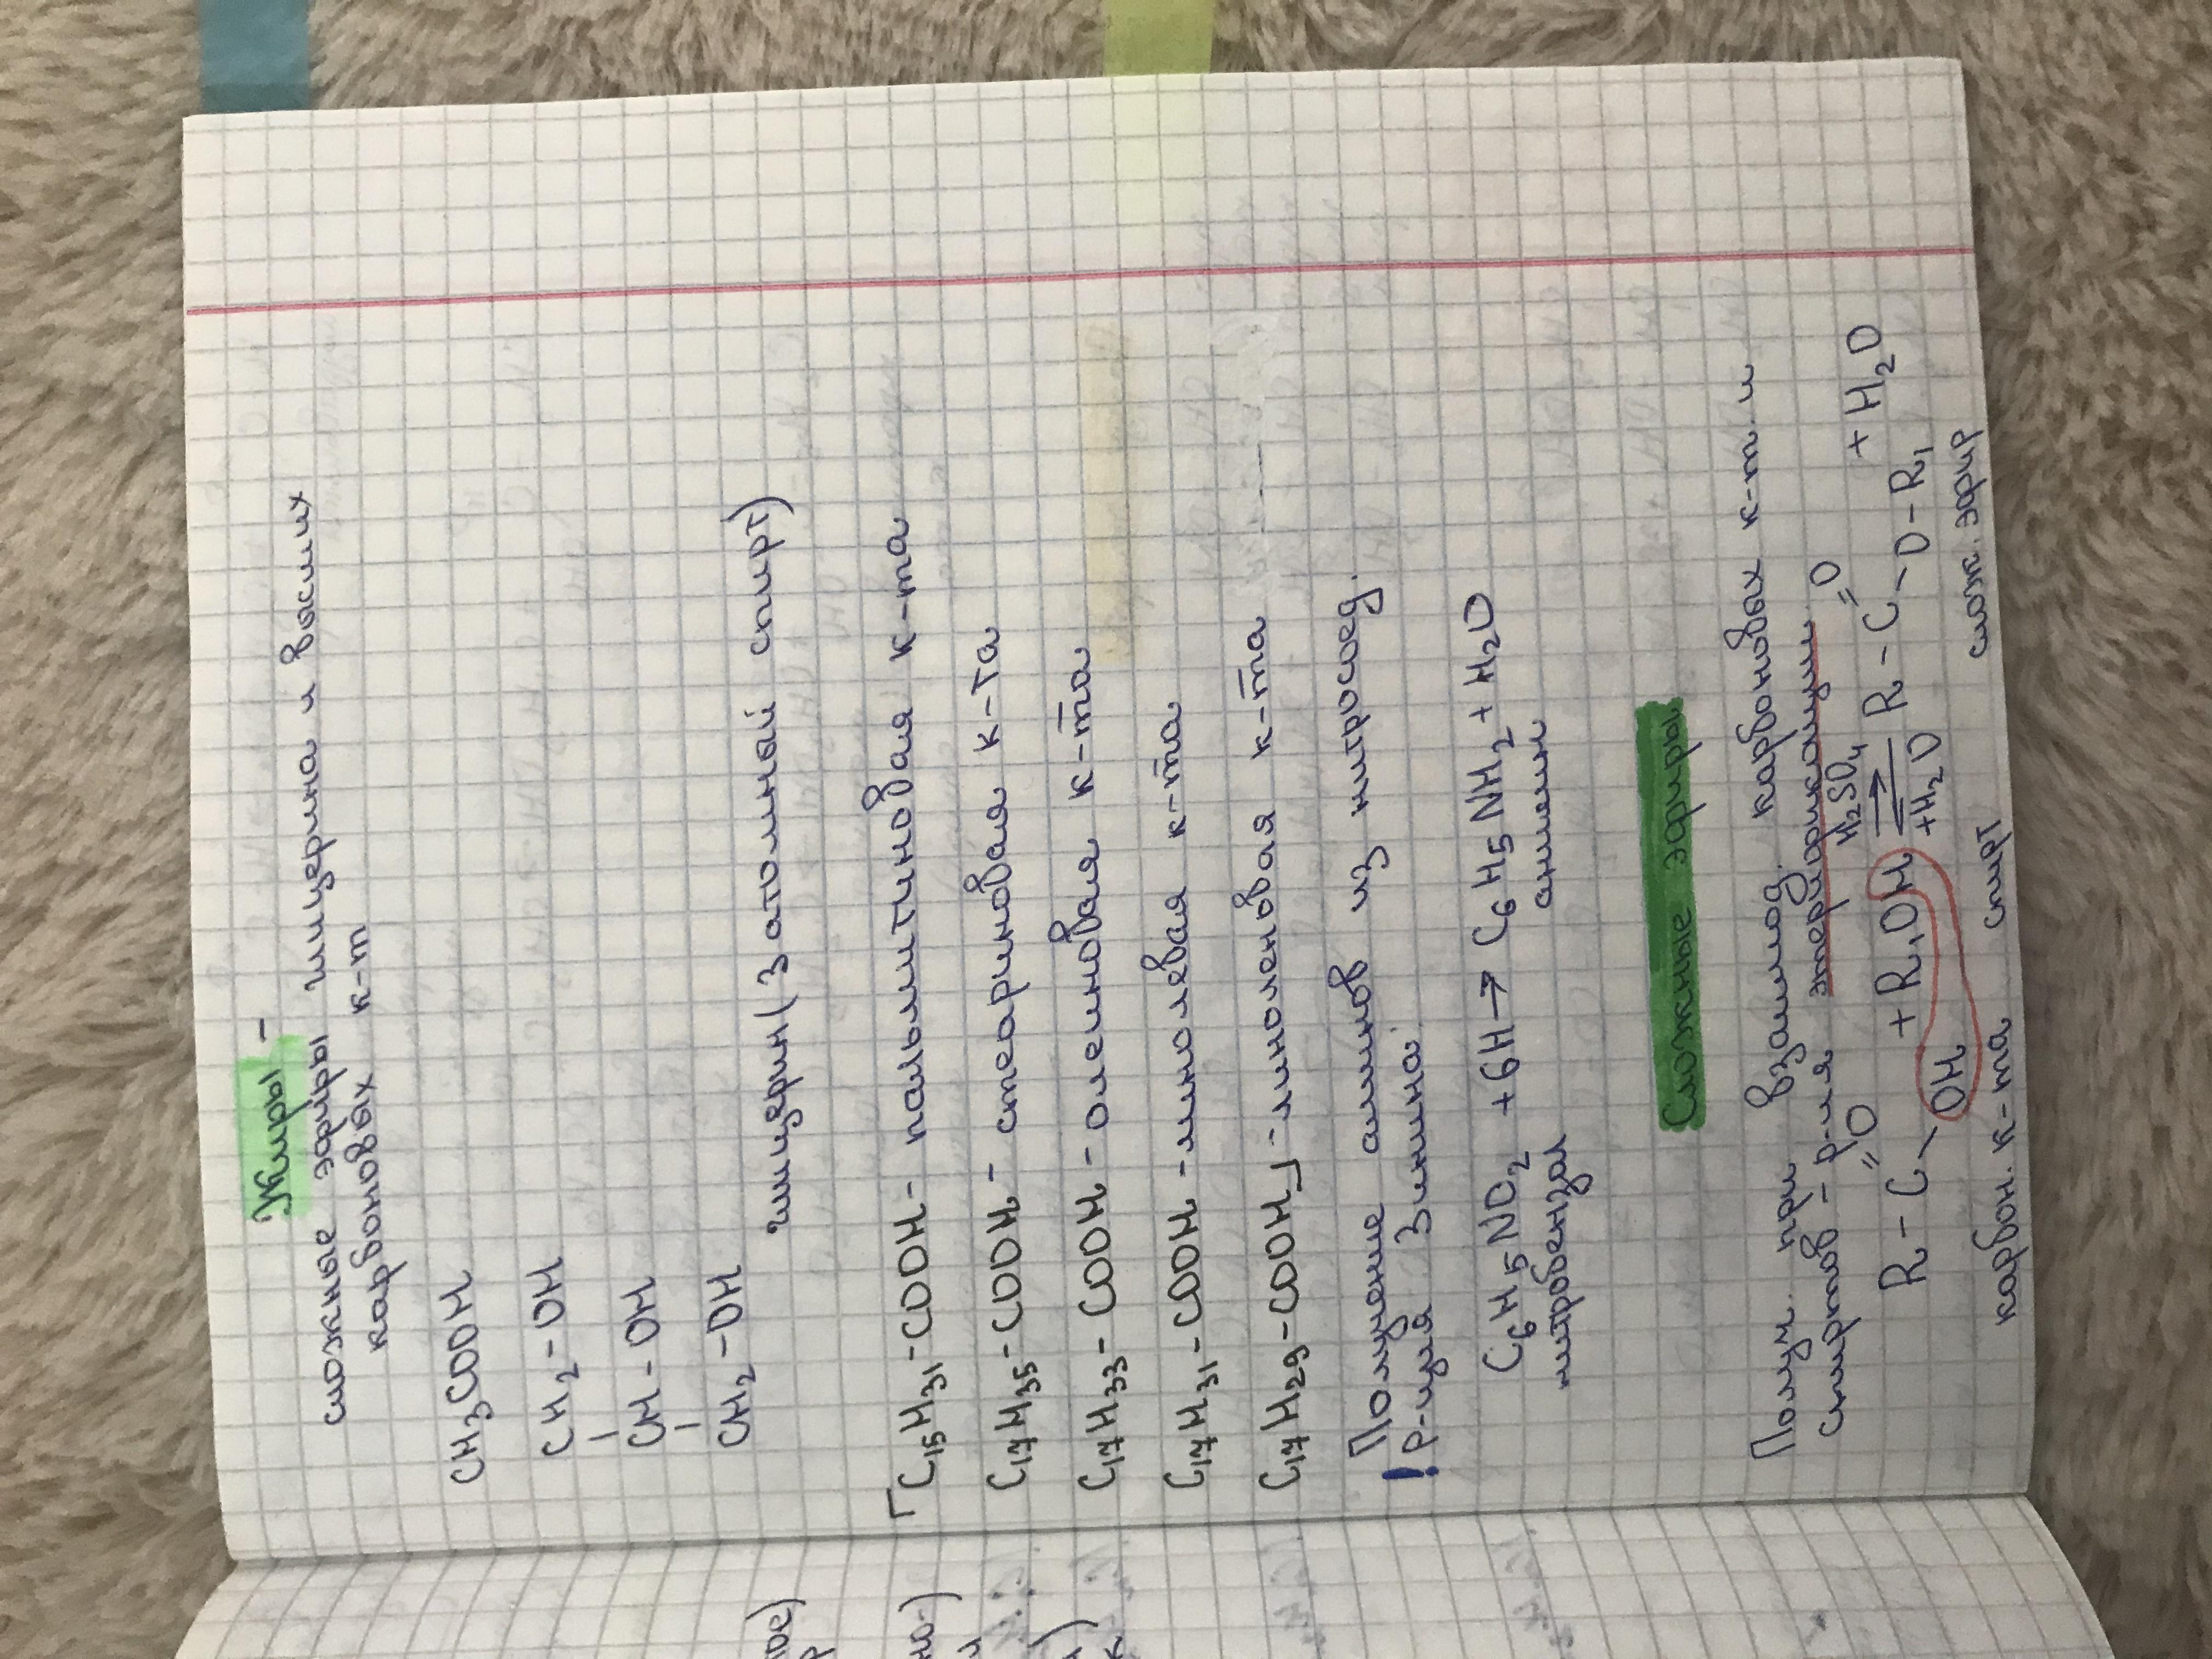 Жиры -
сложные эфиры глицерина и высших
карбоновых к-т
CH3COOH
CH2-OH
|
CH-OH
|
CH2-OH
глицерин (3 атомный спирт)
C15H31-COOH - пальмитиновая к-та
C17H35-COOH - стеариновая к-та
C17H33-COOH - олеиновая к-та
C17H31-COOH - линолевая к-та
C17H29-COOH - линоленовая к-та
Получение аминов из нитросоед.
! р-ция Зинина:
C6H5NO2 + 6H → C6H5NH2 + H2O
нитробензол анилин
Сложные эфиры
Получ. при взаимод. карбоновых к-т и
спиртов - р-ия этерификации
R-C=O-OH + R1OH ⇄ H2SO4 +H2O R-C=O-O-R1 + H2O
карбон. к-та спирт слож. эфир